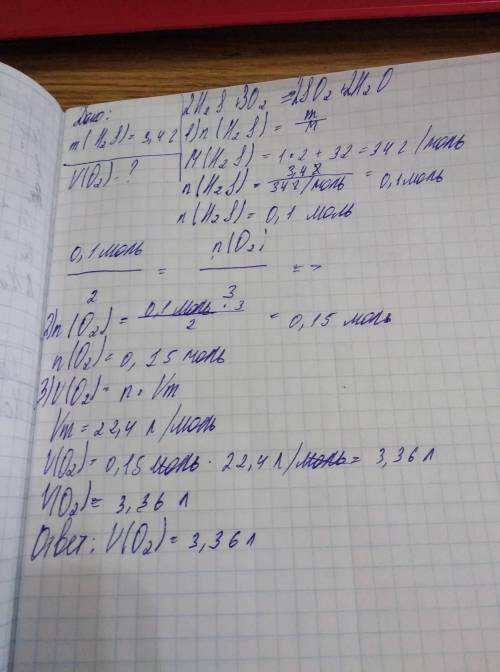 Дано:
m(H₂S) = 3,4 г
V(O₂) - ?
2H₂S + 3O₂ = 2SO₂ + 2H₂O
1) n(H₂S) = m/M
M(H₂S) = 1·2 + 32 = 34 г/моль
n(H₂S) = 3,4 г / 34 г/моль = 0,1 моль
n(H₂S) = 0,1 моль
0,1 моль / 2 = n(O₂) / 3 =>
2) n(O₂) = 0,1 моль · 3 / 2 = 0,15 моль
n(O₂) = 0,15 моль
3) V(O₂) = n · Vm
Vm = 22,4 л/моль
V(O₂) = 0,15 моль · 22,4 л/моль = 3,36 л
V(O₂) = 3,36 л
Ответ: V(O₂) = 3,36 л